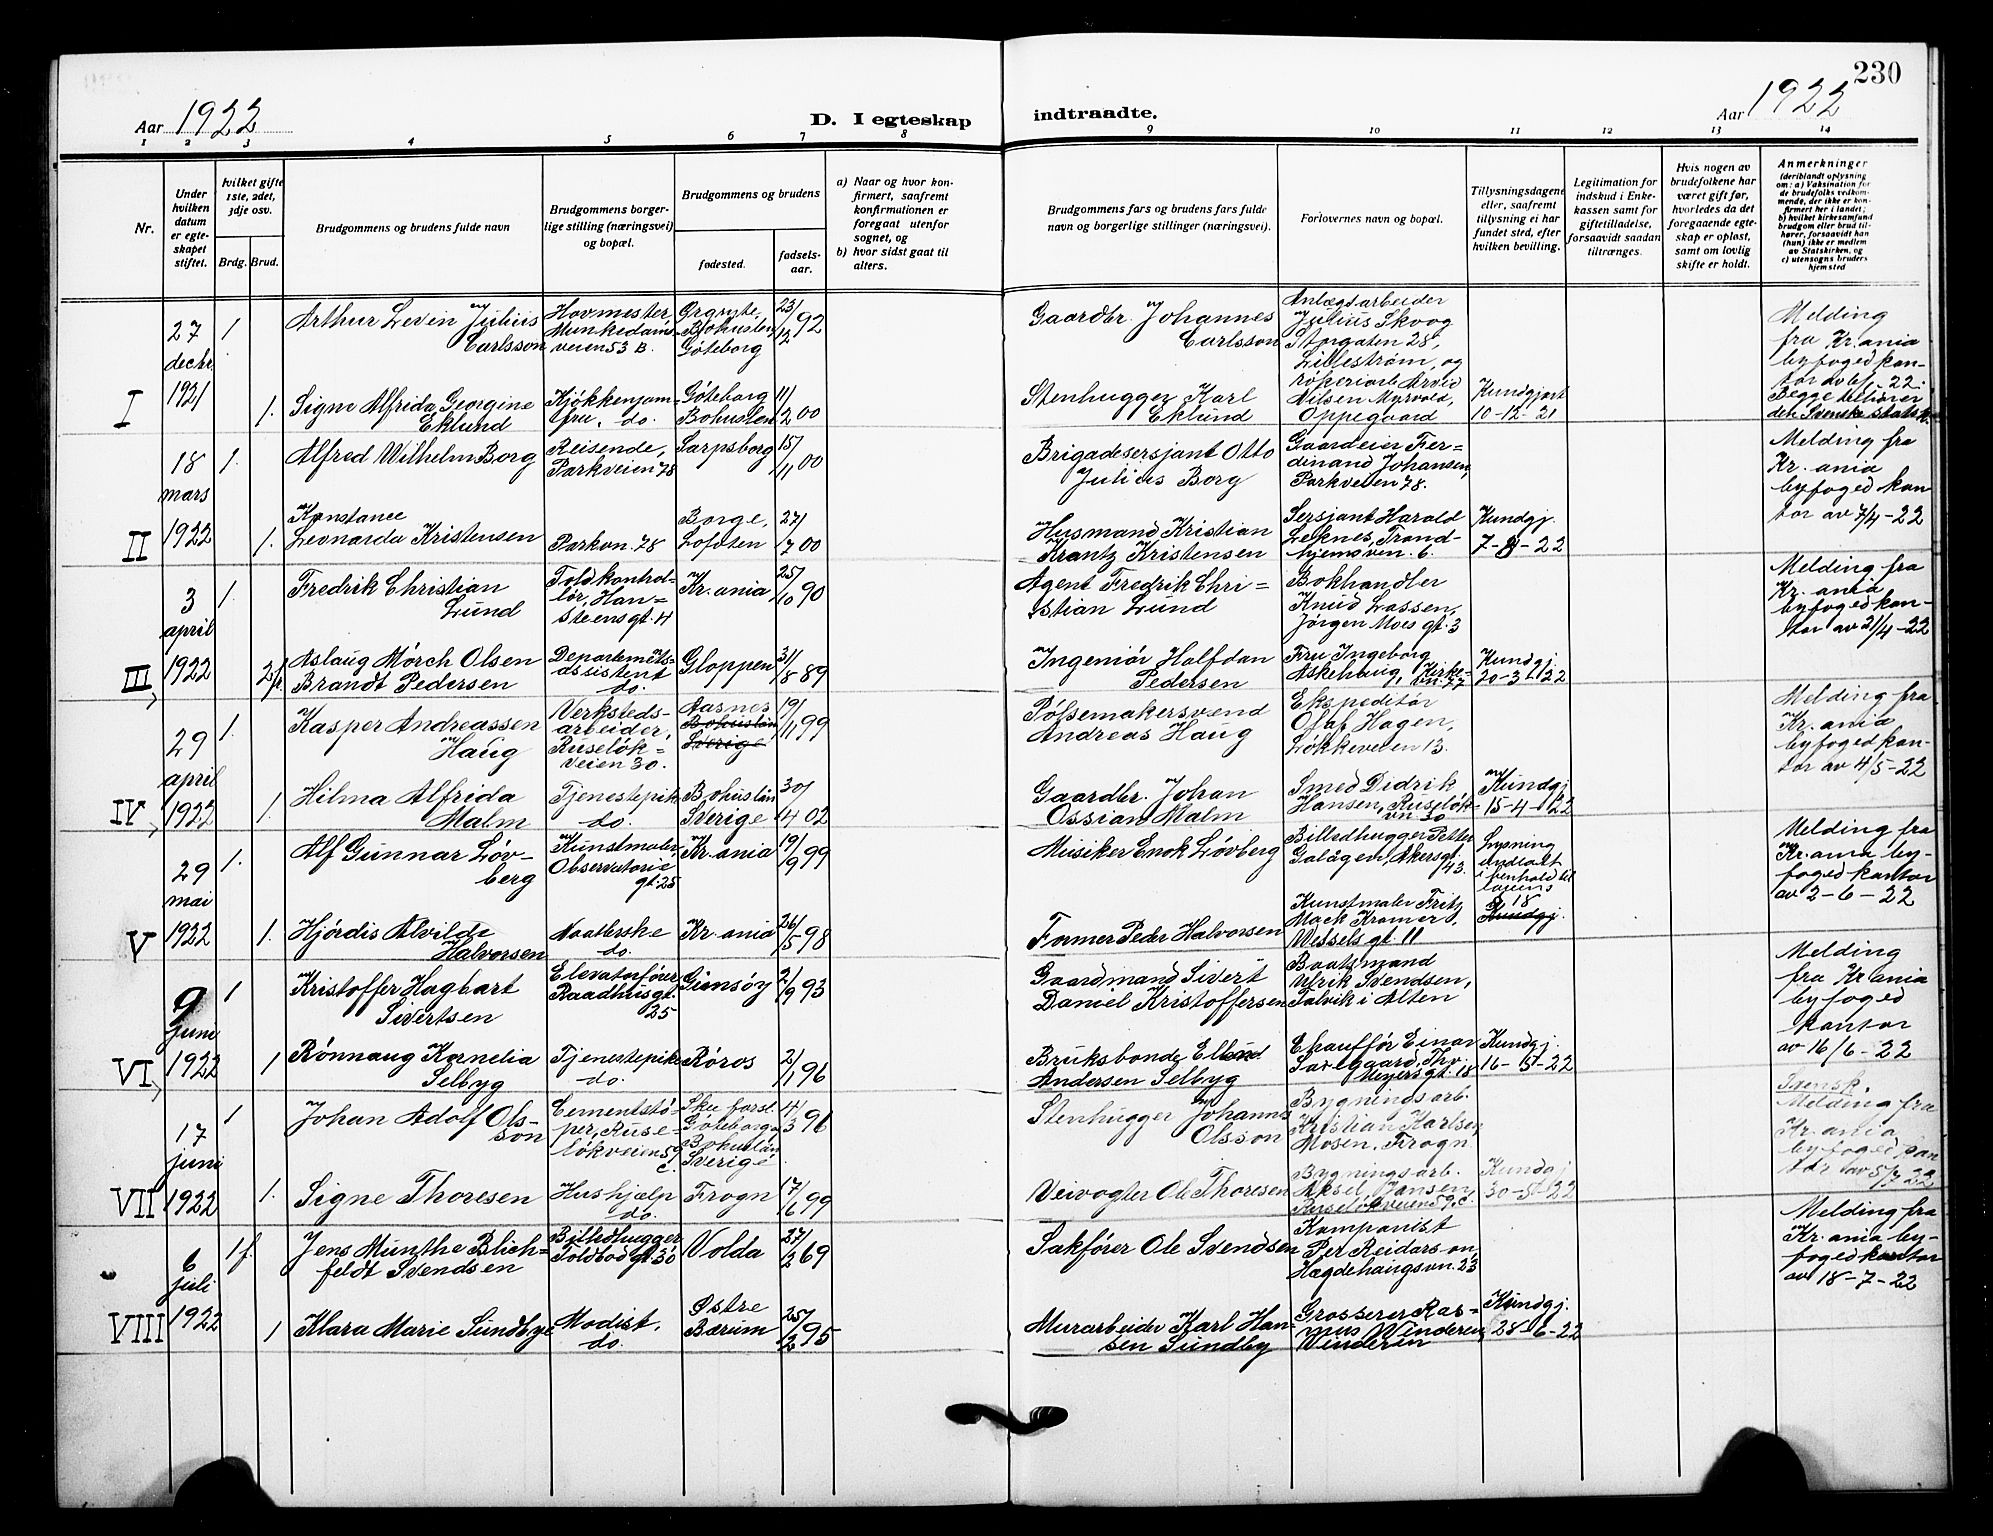 230
Aar 1922
D. I egteskap indtraadte.
Aar 1922
1 2 3 4 5 6 7 8 9 10 11 12 13 14
Nr.
Under hvilken datum er egteskapet stiftet.
hvilket gifte 1ste, 2det, 3dje osv.
Brdg. Brud.
Brudgommens og brudens fulde navn
Brudgommens borgerlige stilling (næringsvei) og bopæl.
Brudgommens og brudens
fødested.
fødselsaar.
a) Naar og hvor konfirmert, saafremt konfirmationen er foregaat utenfor sognet, og
b) hvor sidst gaat til alters.
Brudgommens fars og brudens fars fulde navn og borgerlige stillinger (næringsvei).
Forlovernes navn og bopæl.
Tillysningsdagene eller, saafremt tillysning ei har fundet sted, efter hvilken bevilling.
Legitimation for indskud i Enkekassen samt for giftetilladelse, forsaavidt saadan tiltrænges.
Hvis nogen av brudefolkene har været gift før, hvorledes da det foregaaende egteskap er opløst, samt om lovlig skifte er holdt.
Anmerkninger (deriblandt oplysning om: a) Vaksination for de brudefolks vedkommende, der ikke er konfirmert her i landet; b) hvilket kirkesamfund brudgom eller brud tilhører, forsaavidt han (hun) ikke er medlem av Statskirken, og c) utensogns bruders hjemsted
I
27 decbr. 1921
1
Arthur Levin Julius Carlsson
Hovmester, Munkedamsveien 53 B.
Örgryte, Bohuslen Göteborg
23/12 92
Gaardbr. Johannes Carlsson
Anlægsarbeider Julius Skoog Storgaten 28, Lillestrøm, og
1.
Signe Alfrida Georgine Eklund
Kjøkkenjomfru, do.
Göteborg Bohuslen
11/2 00
Stenhugger Karl Eklund
røkeriarb. Arvid Nilsen Myrvold, Oppegaard
Kundgjort 10-12-21
Melding fra Kr.ania byfogedkontor av 6/1 22. Begge tilhører den Svenske statsk.
II
18 mars 1922
1.
Alfred Wilhelm Borg
Reisende, Parkveien 78
Sarpsborg
15/11 00
Brigadesersjant Otto Julius Borg
Gaardeier Ferdinand Johansen, Parkveien 78.
1.
Konstance Leonarda Kristensen
Parkvn. 78
Borge, Lofoten
27/7 00
Husmand Kristian Krantz Kristensen
Sersjant Harald Leknes, Trondhjemsven. 6.
Kundgj. 7-3-22
Melding fra Kr.ania byfogedkontor av 7/4-22
III
3 april 1922
1.
Fredrik Christian Lund
Toldkontrollør, Hansteensgt. 4
Kr.ania
25/10 90
Agent Fredrik Christian Lund
Bokhandler Knud Lassen, Jørgen Moes gt. 3
2 f.
Aslaug Mørch Olsen Brandt Pedersen
Departemetsassistent do.
Gloppen
31/8 89
Ingeniør Halfdan Pedersen
Fru Ingeborg Askehaug, Kirkevn. 77
Kundgj. 20-3-22
Melding fra Kr.ania byfogedkontor av 21/4-22
IV
29 april 1922
1.
Kasper Andreassen Haug
Verkstedsarbeider, Ruseløkveien 30.
Aasnes Bohuslän Sverige
19/11 99
Pølsemakersvend Andreas Haug
Ekspeditør Olaf Hagen, Løkkeveien 13.
1.
Hilma Alfrida Malm
Tjenestepike do.
Bohuslän Sverige
30/4 02
Gaardbr. Johan Ossian Malm
Smed Didrik Hansen, Ruseløkvn 30
Kundgj. 15-4-22
Melding fra Kr.ania byfogedkontor av 4/5-22
V
29 mai 1922
1.
Alf Gunnar Løvberg
Kunstmaler, Observatoriegt. 25
Kr.ania
19/9 99
Musiker Enok Løvberg
Billedhugger Petter Akersgt. 43.
Lysning undlatt i henhold til lovens § 18
1.
Hjørdis Alvilde Halvorsen
do.
Kr.ania
26/5 98
Former Peder Halvorsen
Kunstmaler Fritz Mack Kramer, Wessels gt. 11
Kundgj.
Melding fra Kr.ania byfogedkontor av 2-6-22
VI
9 juni 1922
1
Kristoffer Hagbart Sivertsen
Elevatorfører Raadhusgt. 25
Gimsøy
2/9 93
Gaardmand Sivert Daniel Kristoffersen
Baatsmand Ulrik Svendsen, Talvik i Alten
1
Rønnaug Kornelia Selbyg
Tjenestepike do.
Røros
2/1 96
Bruksbonde Ellend Andersen Selbyg
Chauffør Einar Thv. Meyersgt. 18
Kundgj. 16-5-22
Melding fra Kr.ania byfogedkontor av 16/6-22
VII
17 juni 1922
1
Johan Adolf Olsson
Cementstøper, Ruseløkveien 59 c.
Skee forsl. Göteborgs Bohuslän Sverige
4/3 96
Stenhugger Johannes Olsson
Bygningsarb. Kristian Karlsen, Mosen, Frogn
1.
Signe Thoresen
Hushjælp do.
Frogn
17/6 99
Veivogter Ole Thoresen
Bygningsarb. Aksel Jansen, Ruseløkveien 59 c.
Kundgj. 30-5-22
Svensk. Melding fra Kr.ania byfogedkontor av 5/7 22
VIII
6 juli 1922
1 f.
Jens Munthe Blichfeldt Svendsen
Billedhugger Toldbodgt. 30
Volda
27/2 69
Sakfører Ole Svendsen
Komponist Per Reidarson, Hægdehaugsvn. 23
1
Klara Marie Sundbye
Modist, do.
Østre Bærum
25/12 95
Murarbeider Karl Hansen Sundby
Grosserer Rasmus Winderen, Vinderen
Kundgj. 28-6-22
Melding fra Kr.ania byfogedkontor av 18-7-22